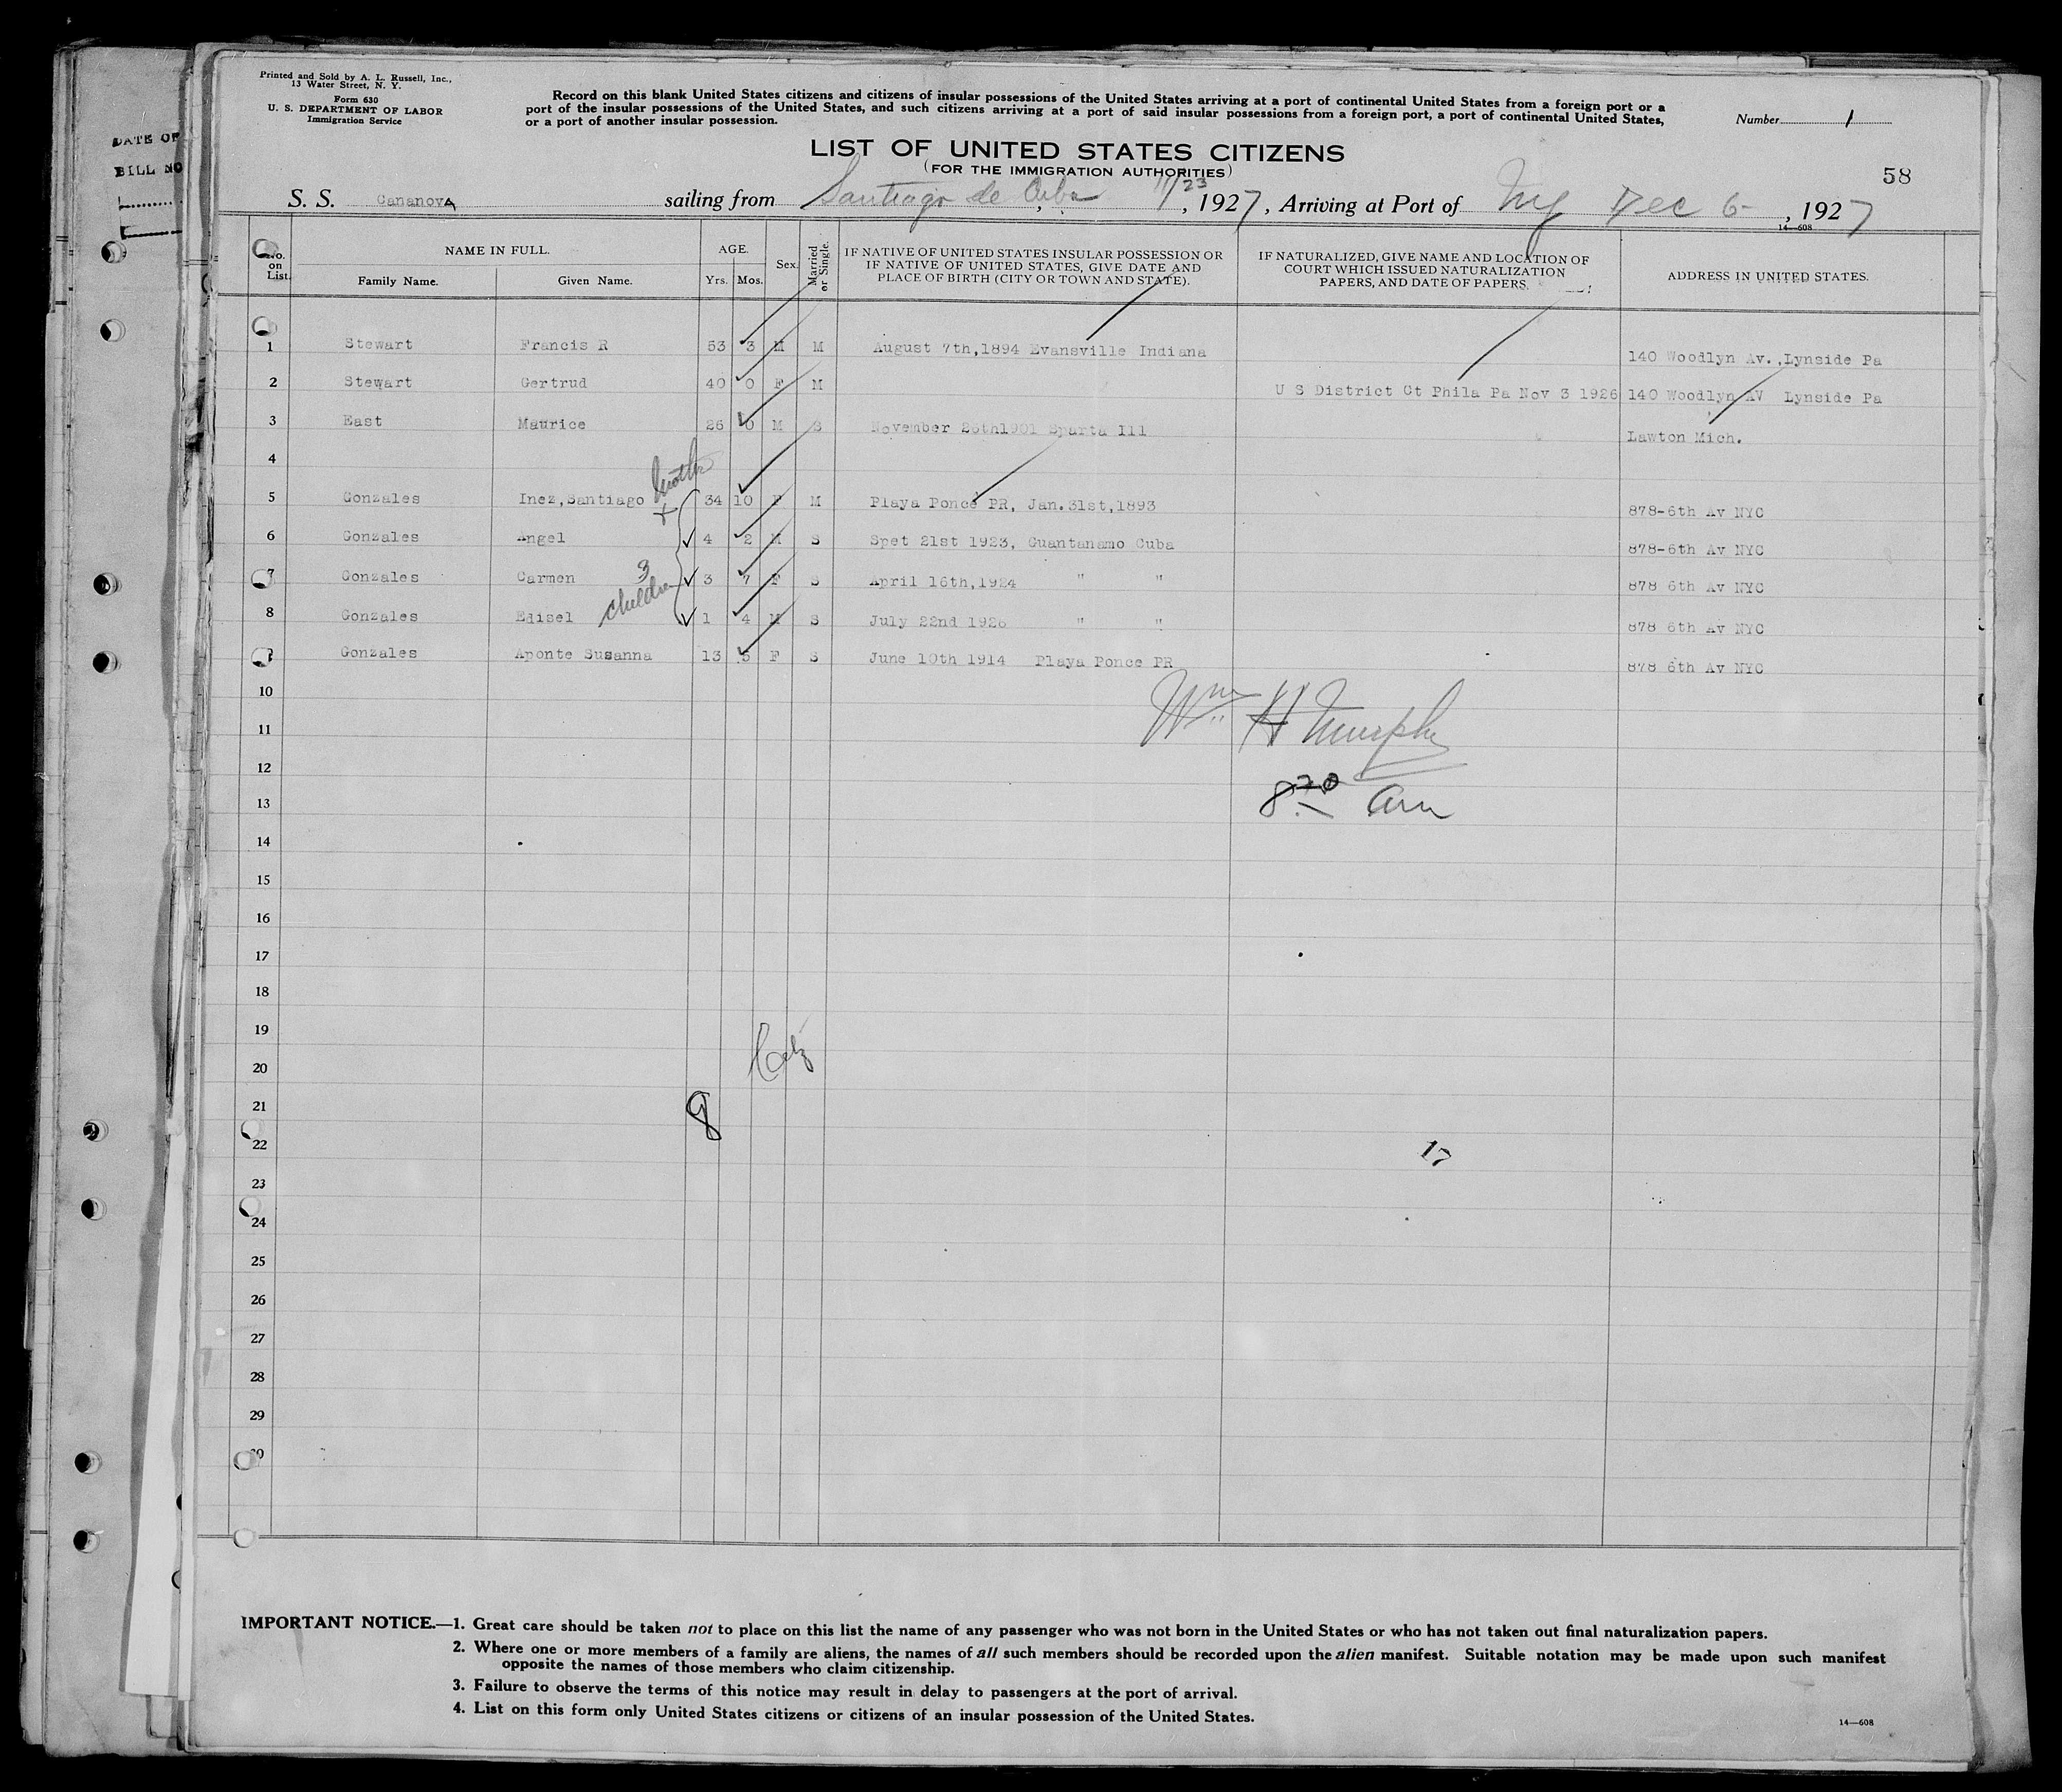 Printed and Sold by A. L. Russell, Inc.,
13 Water Street, N. Y.
Form 630
U. S. DEPARTMENT OF LABOR
Immigration Service
DATE OF
BILL NO
Record on this blank United States citizens and citizens of insular possessions of the United States arriving at a port of continental United States from a foreign port or a
port of the insular possessions of the United States, and such citizens arriving at a port of said insular possessions from a foreign port, a port of continental United States,
or a port of another insular possession.
Number 1
LIST OF UNITED STATES CITIZENS
(FOR THE IMMIGRATION AUTHORITIES)
58
S. S. Cananova sailing from Santiago de Cuba, 11/23, 1927, Arriving at Port of NY Dec 6-, 1927
14—608
No. on List. NAME IN FULL. Family Name. Given Name. AGE. Yrs. Mos. Sex. Married or Single. IF NATIVE OF UNITED STATES INSULAR POSSESSION OR IF NATIVE OF UNITED STATES, GIVE DATE AND PLACE OF BIRTH (CITY OR TOWN AND STATE). IF NATURALIZED, GIVE NAME AND LOCATION OF COURT WHICH ISSUED NATURALIZATION PAPERS, AND DATE OF PAPERS. ADDRESS IN UNITED STATES.
1 Stewart Francis R 53 3 M M August 7th,1894 Evansville Indiana 140 Woodlyn Av.,Lynside Pa
2 Stewart Gertrud 40 0 F M U S District Ct Phila Pa Nov 3 1926 140 Woodlyn AV Lynside Pa
3 East Maurice 26 0 M S November 26th1901 Sparta Ill Lawton Mich.
4
5 Gonzales Inez,Santiago mother 34 10 F M Playa Ponce PR, Jan.31st,1893 878-6th Av NYC
6 Gonzales Angel 4 2 M S Spet 21st 1923, Guantanamo Cuba 878-6th Av NYC
7 Gonzales Carmen 3 children 3 7 F S April 16th,1924 " " 878 6th Av NYC
8 Gonzales Edisel 1 4 M S July 22nd 1926 " " 878 6th Av NYC
Gonzales Aponte Susanna 13 5 F S June 10th 1914 Playa Ponce PR 878 6th Av NYC
10
Wm H Murphy
11
12
8 30 am
13
14
15
16
17
18
19
20
21
8
22
17
23
24
25
26
27
28
29
30
IMPORTANT NOTICE.—1. Great care should be taken not to place on this list the name of any passenger who was not born in the United States or who has not taken out final naturalization papers.
2. Where one or more members of a family are aliens, the names of all such members should be recorded upon the alien manifest. Suitable notation may be made upon such manifest
opposite the names of those members who claim citizenship.
3. Failure to observe the terms of this notice may result in delay to passengers at the port of arrival.
4. List on this form only United States citizens or citizens of an insular possession of the United States.
14—608